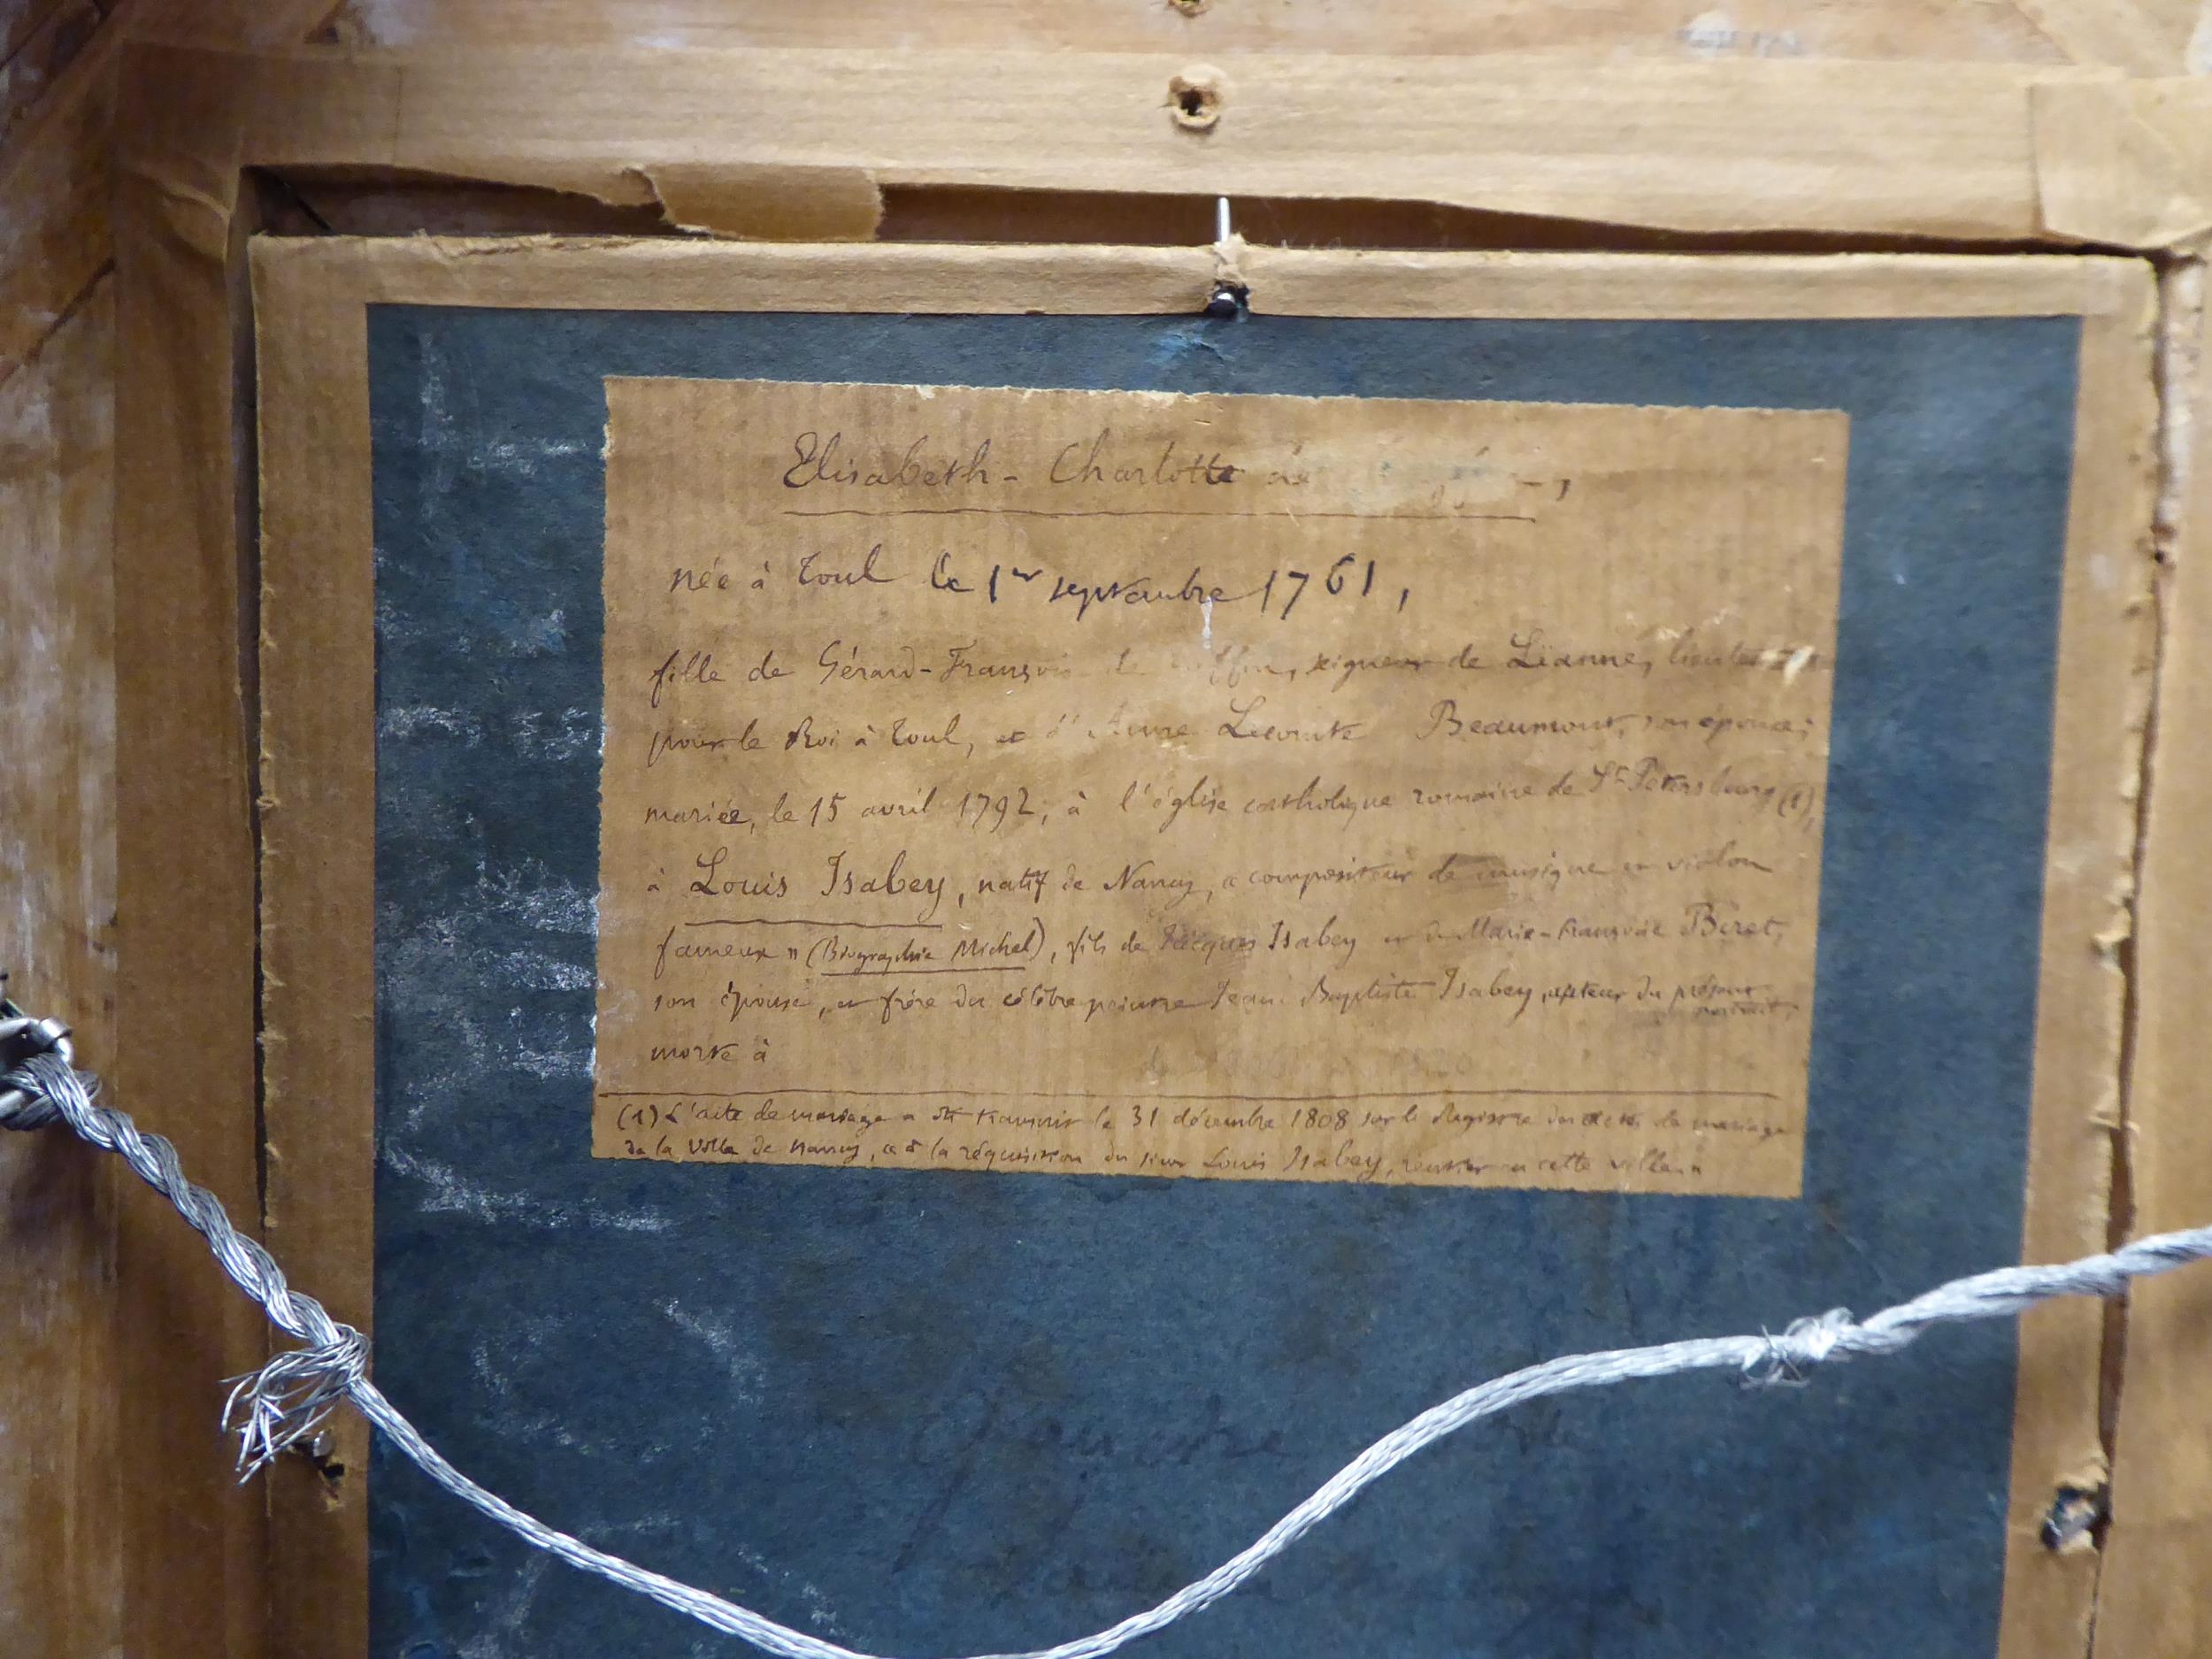 Elisabeth - Charlotte de
née à Toul le 1er septembre 1761,
fille de Gérard-François de seigneur de Lianne, lieutenant
pour le Roi à Toul, et d'Anne Lecomte Beaumont, son épouse;
mariée, le 15 avril 1792, à l'église catholique romaine de St Petersbourg (1),
à Louis Isabey, natif de Nancy, « compositeur de musique et violon
fameux » (Biographie Michel), fils de Jacques Isabey et de Marie-Françoise Beret,
son épouse, et frère du célèbre peintre Jean Baptiste Isabey, auteur du présent
portrait;
morte à
(1) L'acte de mariage a été transcrit le 31 décembre 1808 sur le Registre des actes de mariage
de la ville de Nancy, « à la réquisition du sieur Louis Isabey, rentier en cette ville »